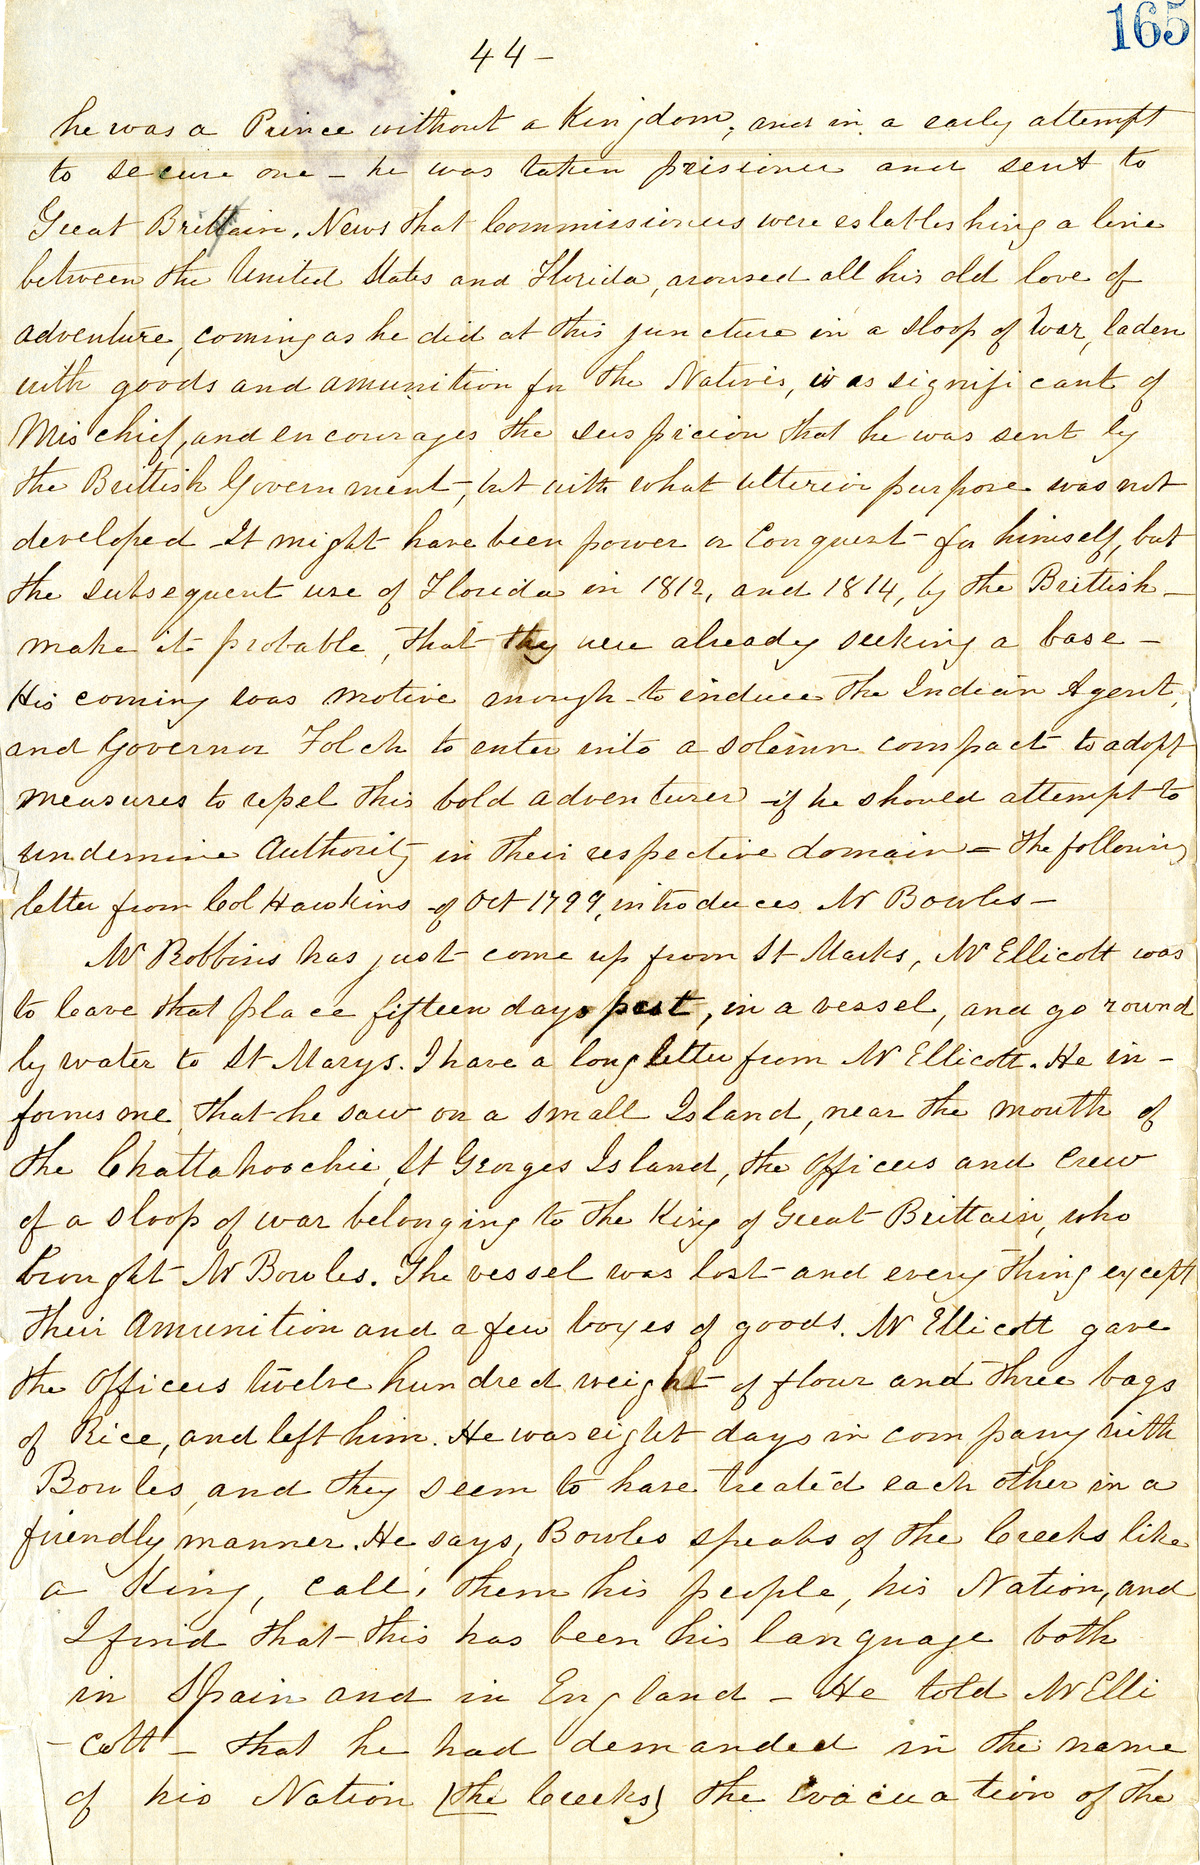 165
44 –
he was a Prince without a Kingdom, and in a early attempt
to secure one – he was taken prissioner and sent to
Great Brittain. News that Commissioners were estableshing a line
between the United States and Florida, aroused all his old love of
adventure, coming as he did at this juncture in a sloop of War, laden
with goods and amunition for the Natives, was significant of
Mischief, and encourages the suspicion that he was sent by
the Brittish Government, but with what ulterior purpose was not
developed – It might have been power or Conquest – for himself, but
the subsequent use of Florida in 1812, and 1814, by the Brittish –
make it probable, that they were already seeking a base –
His coming was motive enough – to induce the Indian Agent,
and Governor Folch to enter into a solemn compact to adopt
measures to repel this bold adventurer – if he should attempt to
undermine Authority in their respective domain – The following
letter from Col Hawkins of Oct 1799, introduces Mr Bowles –
Mr Robbins has just come up from St Marks, Mr Ellicott was
to leave that place fifteen days past, in a vessel, and go round
by water to St Marys. I have a long letter from Mr Ellicott. He in –
forms me, that he saw on a small Island, near the mouth of
the Chattahoochie, St Georges Island, the Officers and Crew
of a sloop of war belonging to the King of Great Brittain, who
brought Mr Bowles. The vessel was lost – and every thing except
their Amunition and a few boxes of goods. Mr Ellicott gave
the Officers twelve hundred weight of flour and three bags
of Rice, and left him. He was eight days in company with
Bowles, and they seem to have treated each other in a
friendly manner. He says, Bowles speaks of the Creeks like
a King, calls them his people, his Nation, and
I find that – this has been his language both
in Spain and in England – He told Mr Elli
– cott – that he had demanded in the name
of his Nation (the Creeks) the Evacuation of the